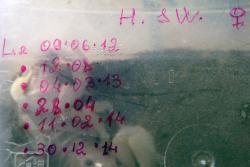 H. SW. ♀
L12 09.06.12
• 18.08
• 04.03.13
• 28.04
• 11.02.14
• 30.12.14